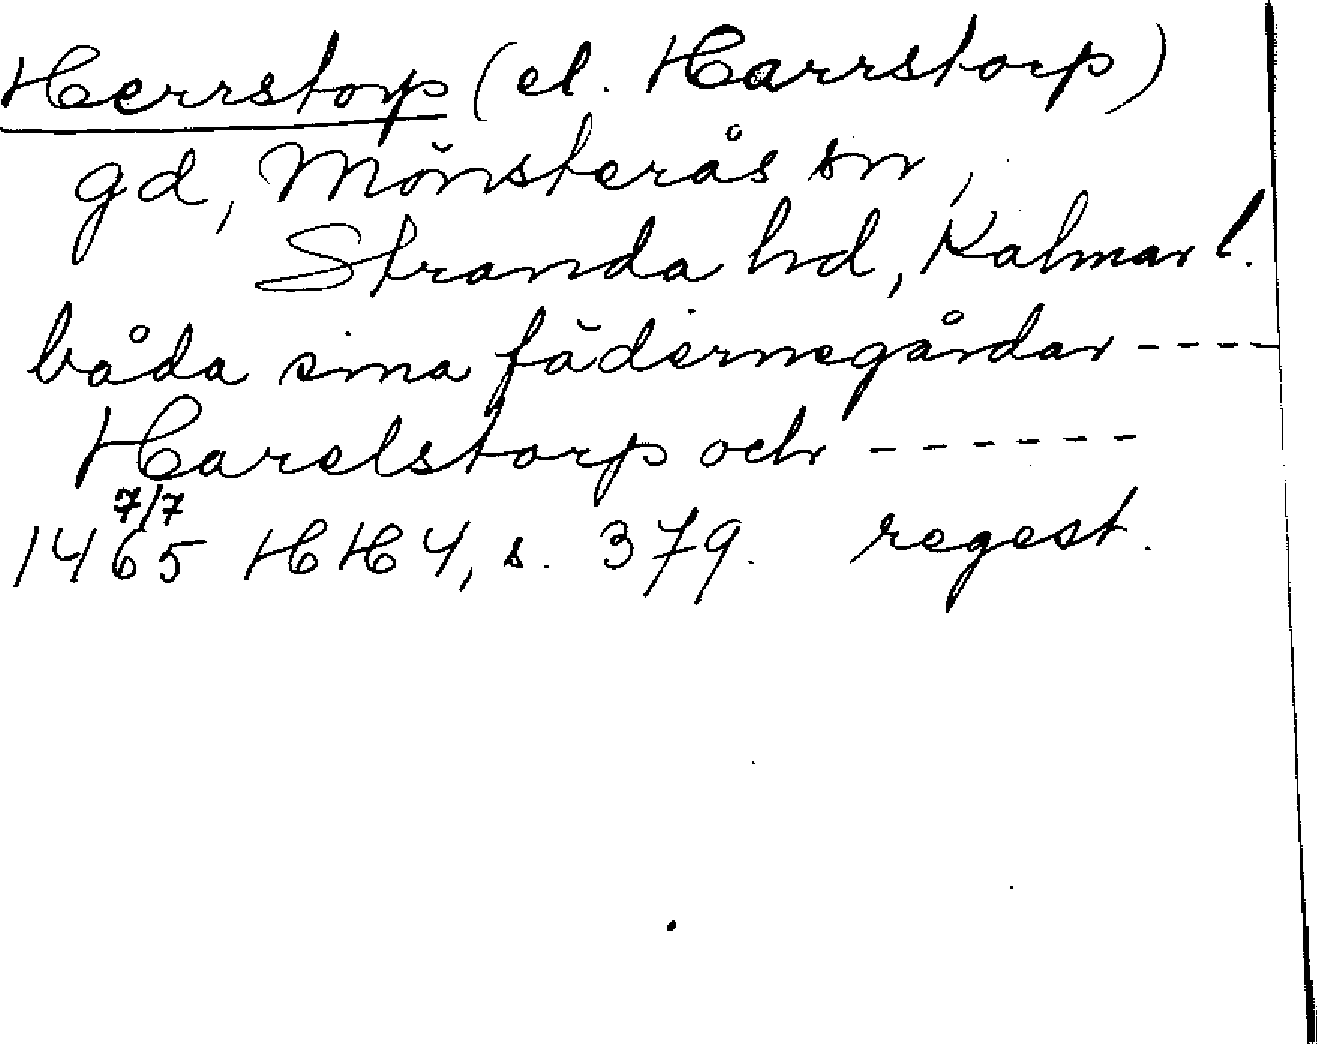 Herrstorp (el. Harrstorp)
gd, Mönsterås sn,
Stranda hd, Kalmar l.
båda sina fädernegårdar ----
Harelstorp och ------
7/7
1465 HH 4, s. 379. regest.